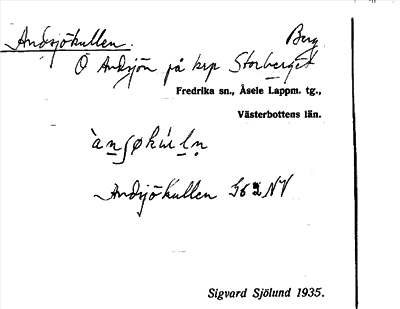 Andsjökullen. Berg
Ö Andsjön på krp Storberget
Fredrika sn., Åsele Lappm. tg.,
Västerbottens län.
Andsjökullen 562 NV
Sigvard Sjölund 1935.